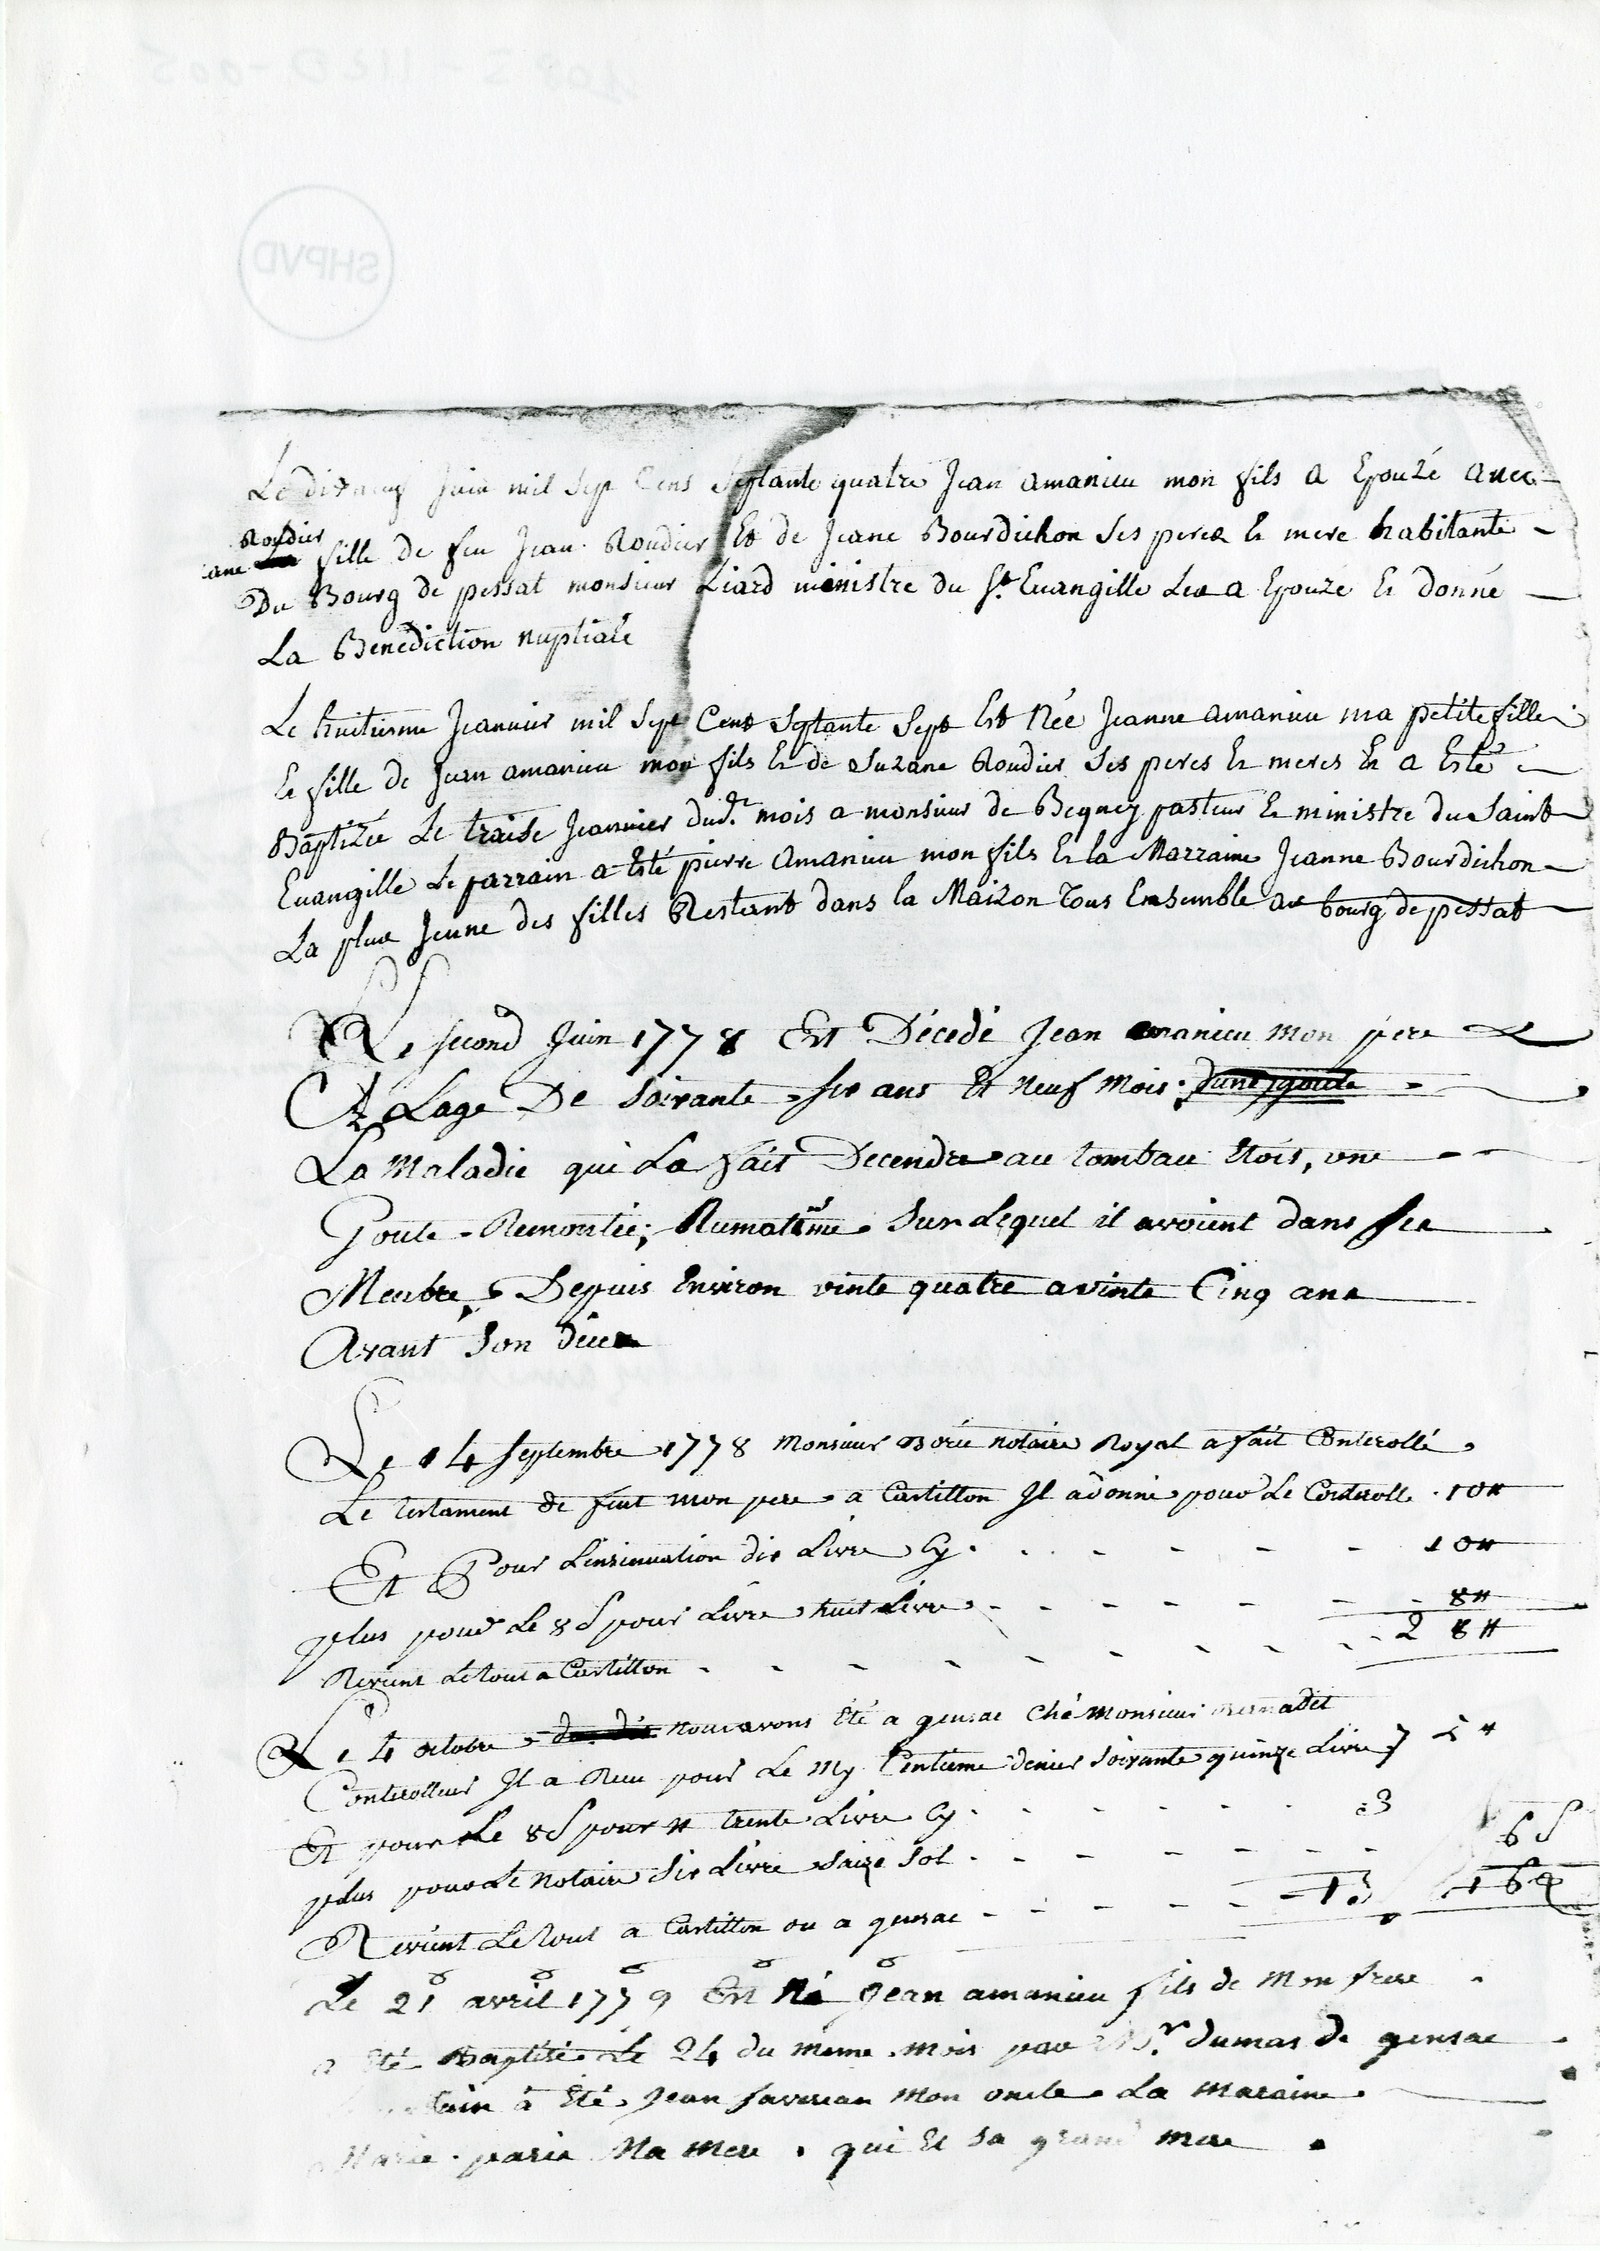 Le dixneuf Juin mil sept Cens Septante quatre Jean amanieu mon fils a Epouzé avec
Roudier
ane fille de feu Jean Roudier Et de Jeane Bourdichon ses peres Et mere habitante
Du Bourg de pessat monsieur Liard ministre du St. Euangille Les a Epouze Et donné
La Benediction nuptiale
Le huitiesme Jeanuier mil Sept Cent Septante Sept Est Née Jeanne amanieu ma petite fille
Et fille de Jean amanieu mon fils Et de Suzane Roudier Ses peres Et meres Et a Esté
Baptizée Le traise Jeanuier dud.t mois a monsieur de Bequey pasteur Et ministre du Saint
Euangille Le parrain a Esté pierre Amanieu mon fils Et la Marraine Jeanne Bourdichon
La plus Jeune des filles Restant dans la Maizon tous Ensemble au bourg de pessat
Le second Juin 1778 Est Décedé Jean amanieu mon pere
A Lage De soixante six ans Et neuf Mois. d'une goute
La Maladie qui La fait Decendre au tombau Etois, une
Goute Remontée; Rumatisme Sur Lequel il avoient dans ses
Menbre, Depuis Environ vinte quatre a vinte Cinq ans
Avant Son déces
Le 14 Septembre 1778 Monsieur Borie notaire Royal a fait Conterollé
Le testament de feut mon pere a Castillon Il a donné pour Le Conterolle 10 ₶
Et Pour Linsinuation dix Livre Cy 10 ₶
plus pour Le 8 S pour Livre huit Livre 8 ₶
Revient Le tout a Castillon 28 ₶
Le 4 octobre nous avons Eté a gensac Ché Monsieur Bernadet
Conterolleur Il a Reçu pour Le my Centieme denier Soixante quinze Livre 7 5 ₶
Et pour Le 8 S pour ₶ trente Livre Cy 3
plus pour Le Notaire Six Livre Saize Sol 6 S
Revient Le tout a Castillon ou a gensac 13
Le 21 avril 1779 Est Né Jean amanieu fils de Mon frere
a Eté Baptisé Le 24 du meme mois par Mr. dumas de gensac
à Eté Jean favereau Mon oncle La maraine
Marie paris Ma Mere qui Et Sa grand mere
SHPVD